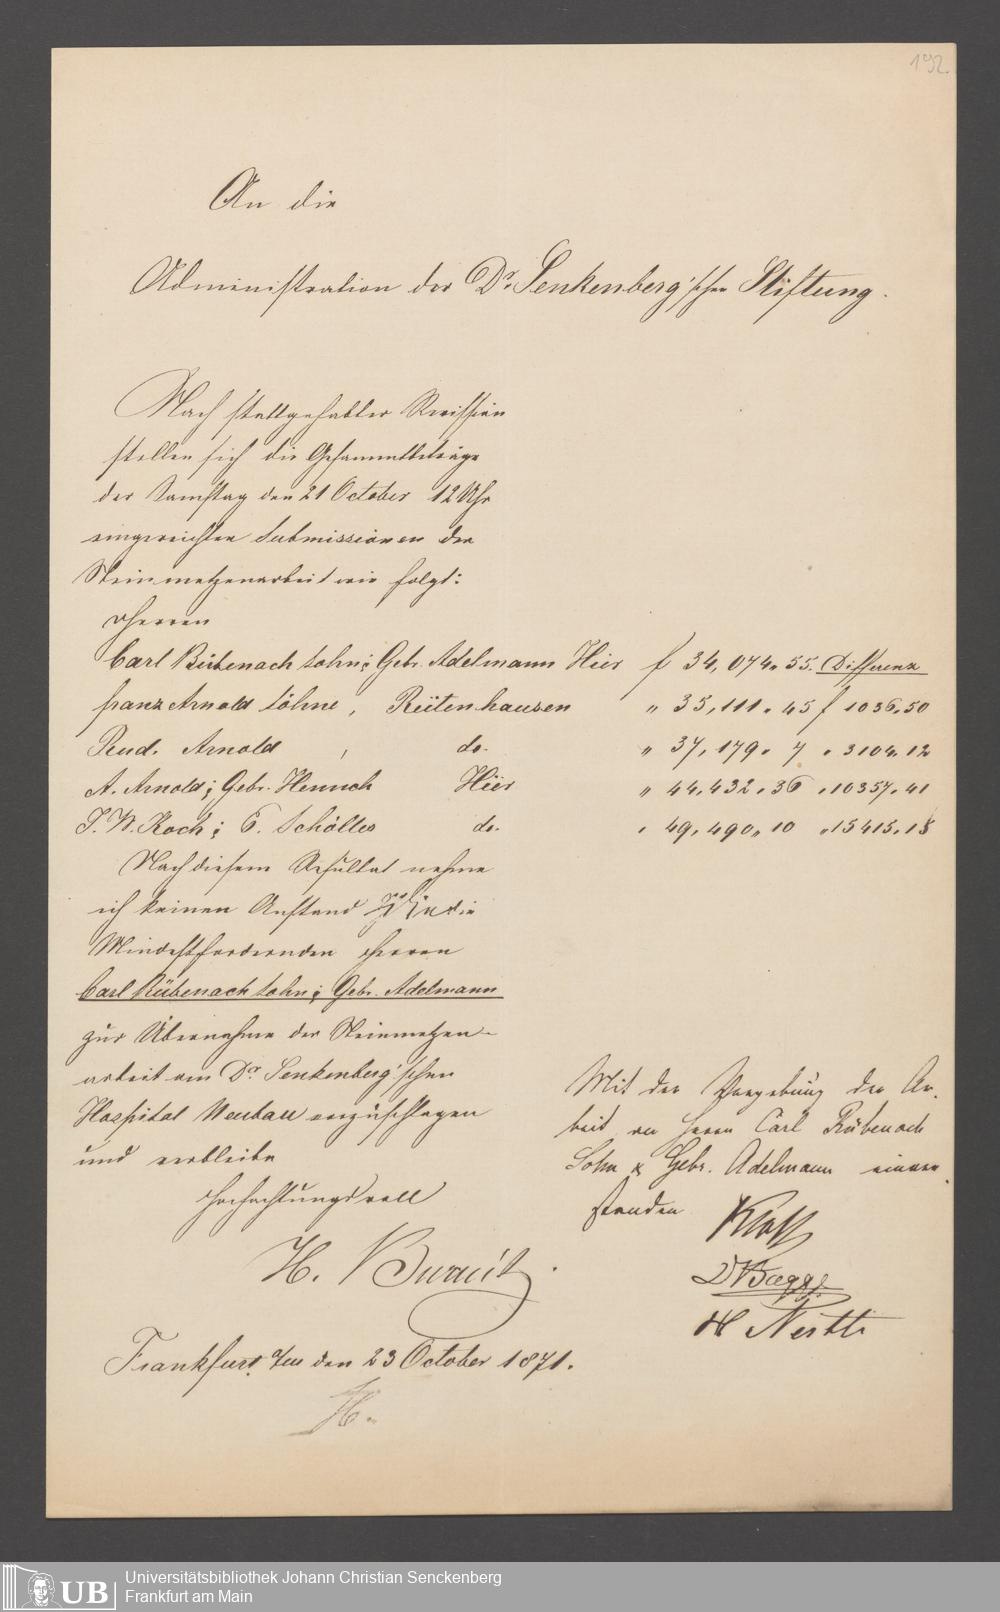 192.
An die
Administration der Dr. Senkenberg'schen Stiftung.
Nach stattgehabter Revission
stellen sich die Gesammtbeträge
der Samstag den 21 October 12 Uhr
eingereichten Submissionen der
Steinmetzenarbeit wie folgt:
Herren
Carl Rübenach Sohn; Gebr. Adelmann Hier f 34,074. 55. Differenz
Franz Arnold Söhne, Reitenhausen " 35,111. 45 f 1036.50
Rud. Arnold , do. " 37,179. 7 " 3104.12
A. Arnold; Gebr. Hennch Hier " 44,432. 36 " 10357.41
J. W. Koch; C. Schölles do. " 49,490. 10 " 15415.15
Nach diesem Resultat nehme
ich keinen Anstand die
Mindestfordernden Herren
Carl Rübenach Sohn; Gebr. Adelmann
zur Übernahme der Steinmetzen-
arbeit am Dr. Senkenberg'schen
Hospital Neubau vorzuschlagen
und verbleibe
Hochachtungsvoll
H. Burnitz.
Frankfurt a/m den 23 October 1871.
H.
Mit der Vergebung der Ar-
beit an Herrn Carl Rübenach
Sohn & Gebr. Adelmann einver-
standen
Kloß
H Nestle
UB
Universitätsbibliothek Johann Christian Senckenberg
Frankfurt am Main